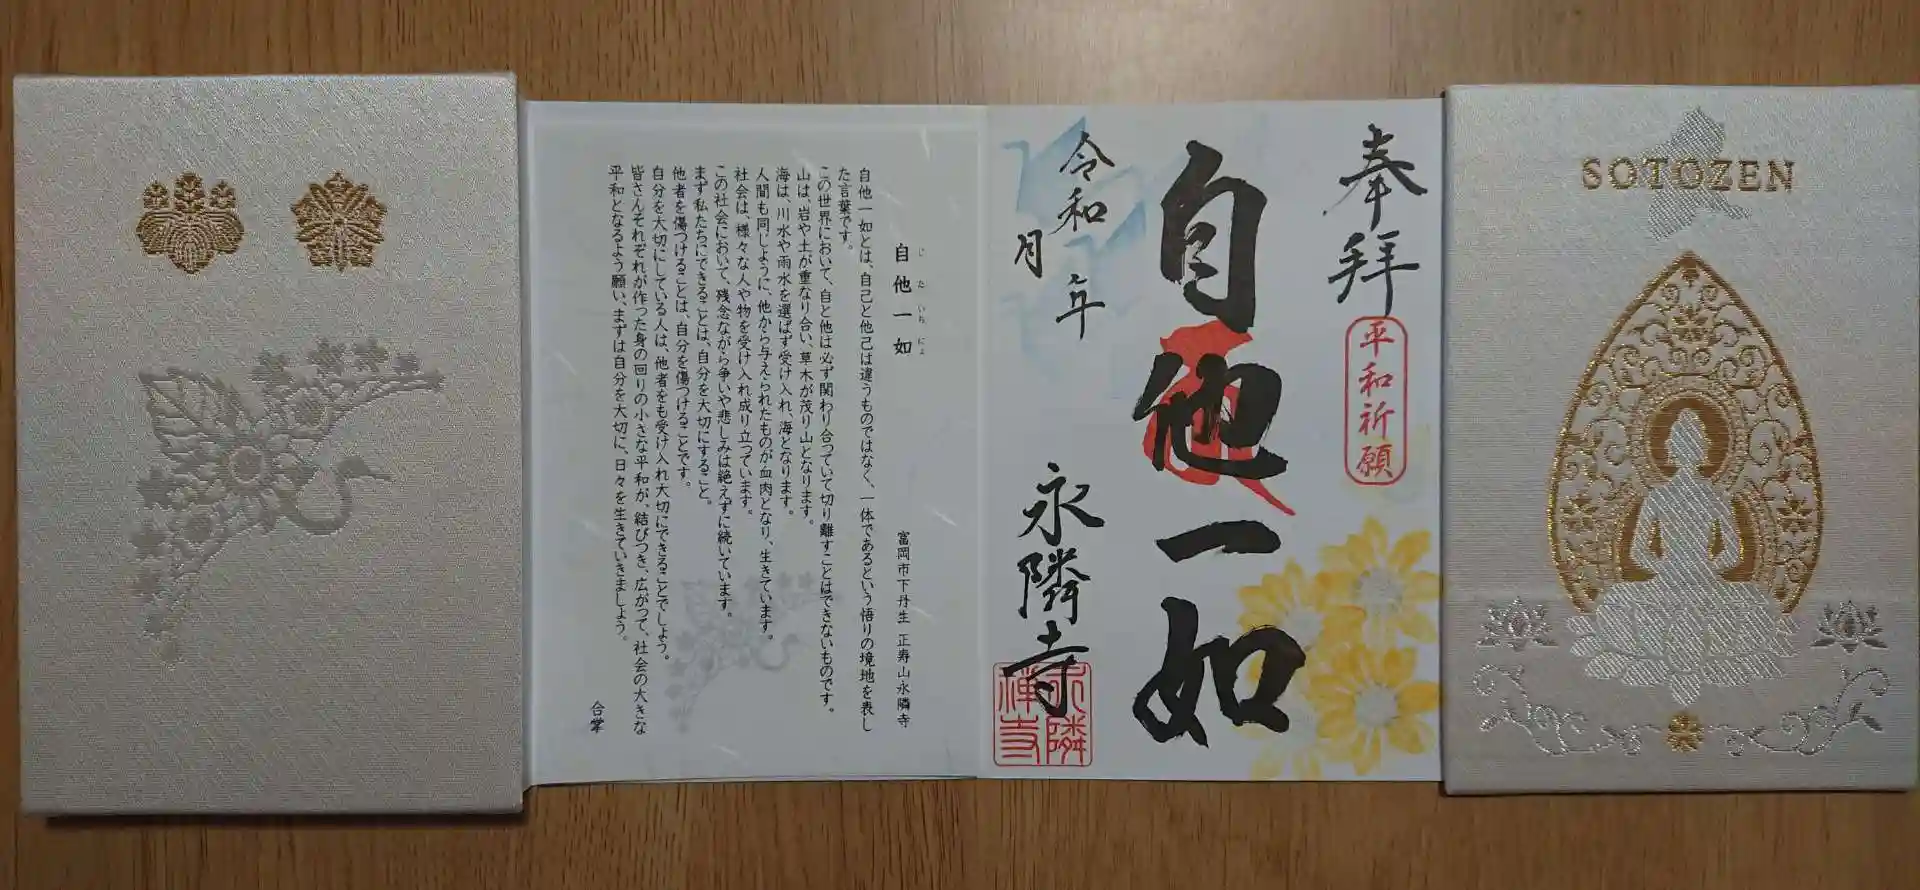 SOTOZEN
奉拝
平和祈願
自他一如
令和 年
月
永隣寺
永隣
禅寺
自他一如
じたいちにょ
富岡市下丹生 正寿山永隣寺
自他一如とは、自己と他己は違うものではなく、一体であるという悟りの境地を表し
た言葉です。
この世界において、自と他は必ず関わり合っていて切り離すことはできないものです。
山は、岩や土が重なり合い、草木が茂り山となります。
海は、川水や雨水を選ばず受け入れ、海となります。
人間も同じように、他から与えられたものが血肉となり、生きています。
社会は、様々な人や物を受け入れ成り立つています。
この社会において、残念ながら争いや悲しみは絶えずに続いています。
まず私たちにできることは、自分を大切にすること。
他者を傷つけることは、自分を傷つけることです。
自分を大切にしている人は、他者をも受け入れ大切にできることでしょう。
皆さんそれぞれが作った身の回りの小さな平和が、結びつき、広がつて、社会の大きな
平和となるよう願い、まずは自分を大切に、日々を生きていきましょう。
合掌